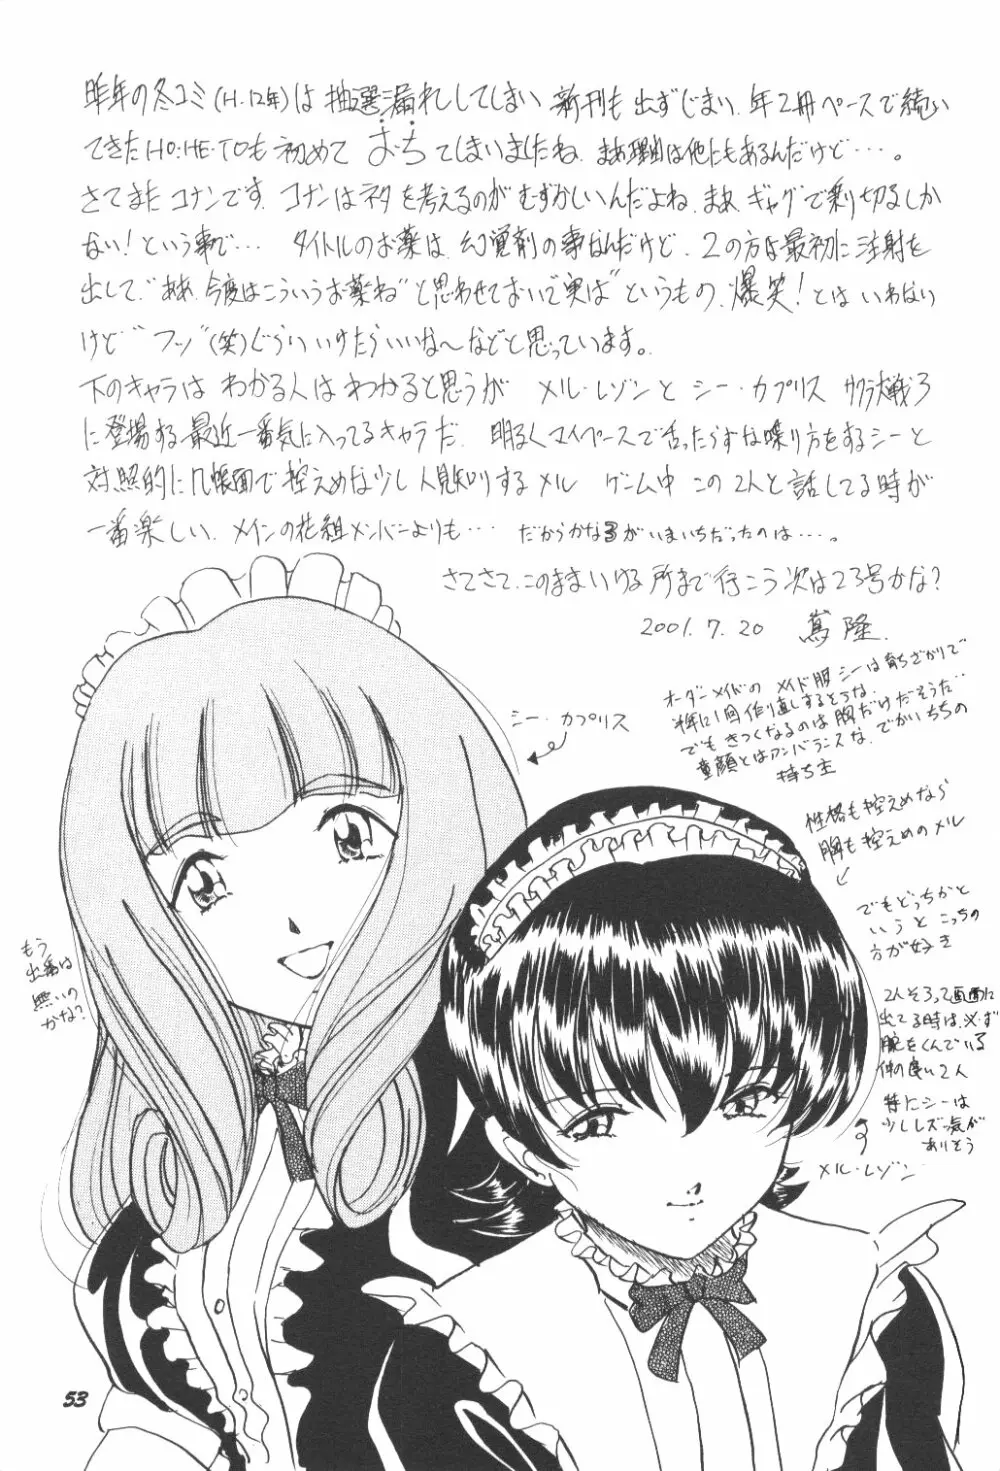 昨年の冬コミ(H.12年)は抽選漏れしてしまい 新刊も出ずじまい、年2冊ペースで続い
てきたHO:HE・TOも初めて おち てしまいましたね。まあ理由は他にもあるんだけど‥‥。
さてまたコナンです。コナンはネタを考えるのがむずかしいんだよね、まあ、ギャグで乗り切るしか
ない!という事で‥‥ タイトルのお薬は、幻覚剤の事なんだけど、2の方は最初に注射を
出して、“ああ、今度はこういうお薬ね”と思わせておいて“実は”というもの。爆笑!とはいわない
けど“フッ”(笑)ぐらいいけたらいいな〜などと思っています。
下のキャラはわかる人はわかると思うが メル・レゾンとシー・カプリス サクラ大戦3
に登場する最近一番気に入ってるキャラだ。明るくマイペースで舌ったらずな喋り方をするシーと
対照的に几帳面で控えめな少し人見知りするメル ゲーム中この2人と話してる時が
一番楽しい。メインの花組メンバーよりも‥‥ だからかな3がいまいちだったのは‥‥。
さてさて、このままいける所まで行こう次は23号かな?
2001.7.20 蔦 隆
オーダーメイドのメイド服 シーは育ちざかりで
半年に1回作り直しするとちな。
でもきつくなるのは胸だけだそうだ‥
童顔とはアンバランスな、でかいちちの
持ち主
シー・カプリス
性格も控えめなら
胸も控えめのメル
でもどっちかと
いうと こっちの
方が好き
もう
出番は
無いの
かな?
2人そろって画面に
出てる時は必ず
腕をくんでいる
仲の良い2人
特にシーは
少しレズ気が
ありそう
メル・レゾン
53